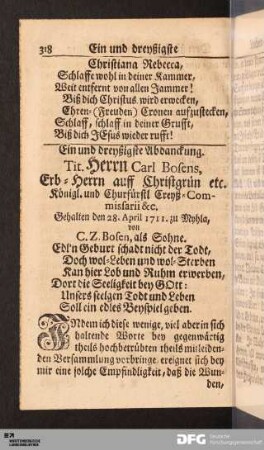 318 Ein und dreyßigste
Christiana Rebecca,
Schlaffe wohl in deiner Kammer,
Weit entfernt von allen Jammer!
Biß dich Christus wird erwecken,
Ehren-(Freuden) Cronen aufzustecken,
Schlaff, schlaff in deiner Grufft,
Biß dich JEsus wieder rufft!
Ein und dreyßigste Abdanckung.
Tit. Herrn Carl Bosens,
Erb-Herrn auff Christgrün etc.
Königl. und Churfürstl Creyß-Com-
missarii &c.
Gehalten den 28. April 1711. zu Mylyla,
von
C. Z. Bosen, als Sohne.
Edl'n Geburt schadt nicht der Todt,
Doch wol-Leben und wol-Sterben
Kan hier Lob und Ruhm erwerben,
Dort die Seeligkeit bey GOtt:
Unsers seelgen Todt und Leben
Soll ein edles Beyspiel geben.
INdem ich diese wenige, viel aber in sich
haltende Worte bey gegenwärtig
theils hochbetrübten theils mitleiden-
den Versammlung vorbringe, ereignet sich bey
mir eine solche Empfindligkeit, daß die Wun-
den,
DFG Deutsche
Forschungsgemeinschaft